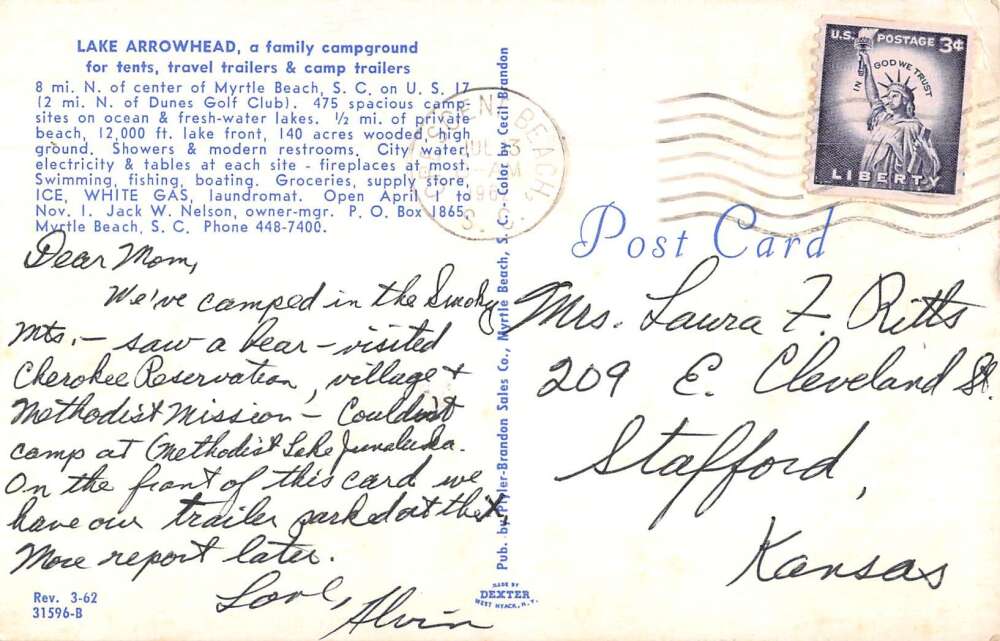 LAKE ARROWHEAD, a family campground
for tents, travel trailers & camp trailers
8 mi. N. of center of Myrtle Beach, S. C. on U. S. 17
(2 mi. N. of Dunes Golf Club). 475 spacious camp-
sites on ocean & fresh-water lakes. ½ mi. of private
beach, 12,000 ft. lake front, 140 acres wooded high
ground. Showers & modern restrooms. City water,
electricity & tables at each site - fireplaces at most.
Swimming, fishing, boating. Groceries, supply store,
ICE, WHITE GAS, laundromat. Open April 1 to
Nov. 1. Jack W. Nelson, owner-mgr. P. O. Box 1865,
Myrtle Beach, S. C. Phone 448-7400.
Dear Mom,
We've camped in the Smoky
Mts. - saw a bear - visited
Cherokee Reservation, village &
Methodist Mission - Couldn't
camp at Methodist Lake Junaluska.
On the front of this card we
have our trailer parked at the X,
More report later.
Love, Alvin
Rev. 3-62
31596-B
Pub. by Plyler-Brandon Sales Co., Myrtle Beach, S. C. - Color by Cecil Brandon
MADE BY
DEXTER
WEST NYACK, N.Y.
BEACH, S. C.
JUL 3
AM
U.S. POSTAGE 3¢
IN GOD WE TRUST
LIBERTY
Post Card
Mrs. Laura F. Ritts
209 E. Cleveland St.
Stafford,
Kansas